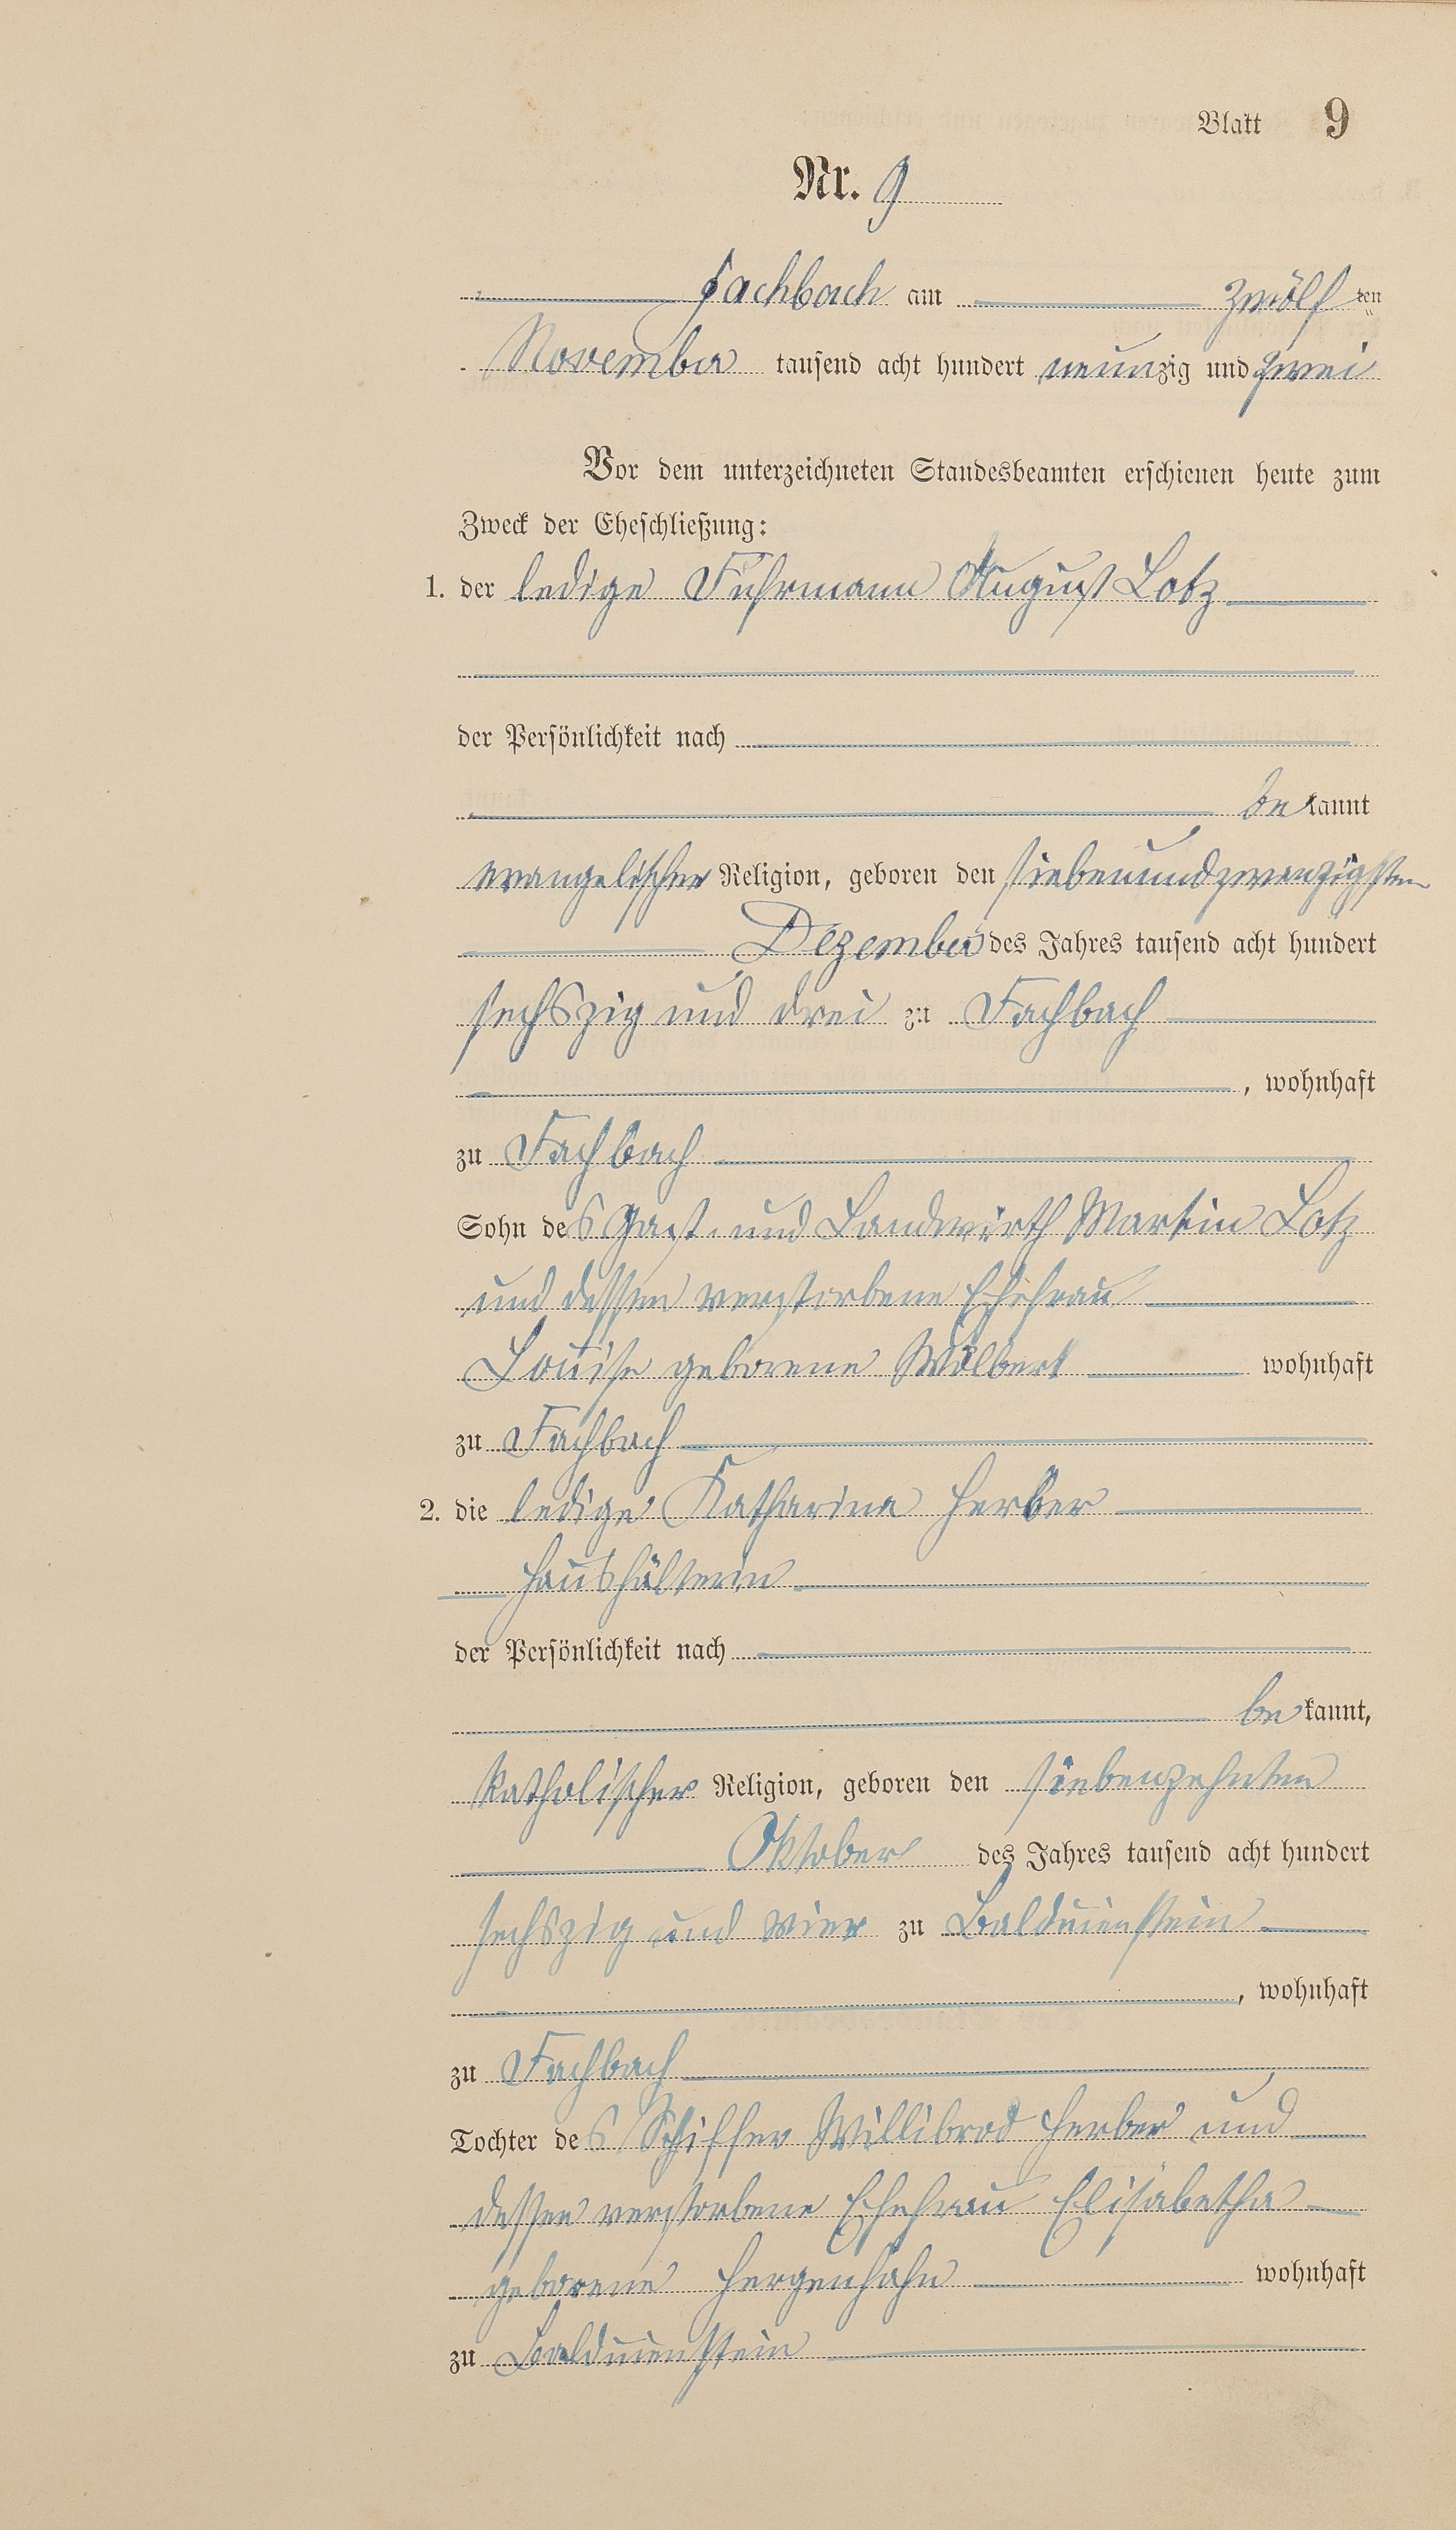 Blatt 9
Nr. 9
Fachbach am zwölf ten
November tausend acht hundert neunzig und zwei
Vor dem unterzeichneten Standesbeamten erschienen heute zum
Zweck der Eheschließung:
1. der ledige Fuhrmann August Lotz
der Persönlichkeit nach
bekannt
evangelischer Religion, geboren den siebenundzwanzigsten
Dezember des Jahres tausend acht hundert
sechszig und drei zu Fachbach
, wohnhaft
zu Fachbach
Sohn des Gast- und Landwirth Martin Lotz
und dessen verstorbene Ehefrau
Louise geborene Wölbert wohnhaft
zu Fachbach
2. die ledige Katharina Herber
Haushälterin
der Persönlichkeit nach
bekannt,
katholischer Religion, geboren den siebenzehnten
Oktober des Jahres tausend acht hundert
sechszig und vier zu Balduienstein
, wohnhaft
zu Fachbach
Tochter des Schiffer Willibrod Herber und
dessen verstorbene Ehefrau Elisabetha
geborene Hergenhahn wohnhaft
zu Balduienstein